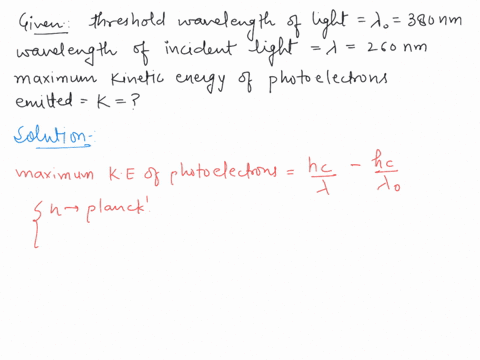 Given: threshold wavelength of light = λ₀ = 380 nm
wavelength of incident light = λ = 260 nm
maximum kinetic energy of photoelectrons
emitted = K = ?
Solution:-
maximum K.E of photoelectrons = hc/λ - hc/λ₀
{ h → planck'